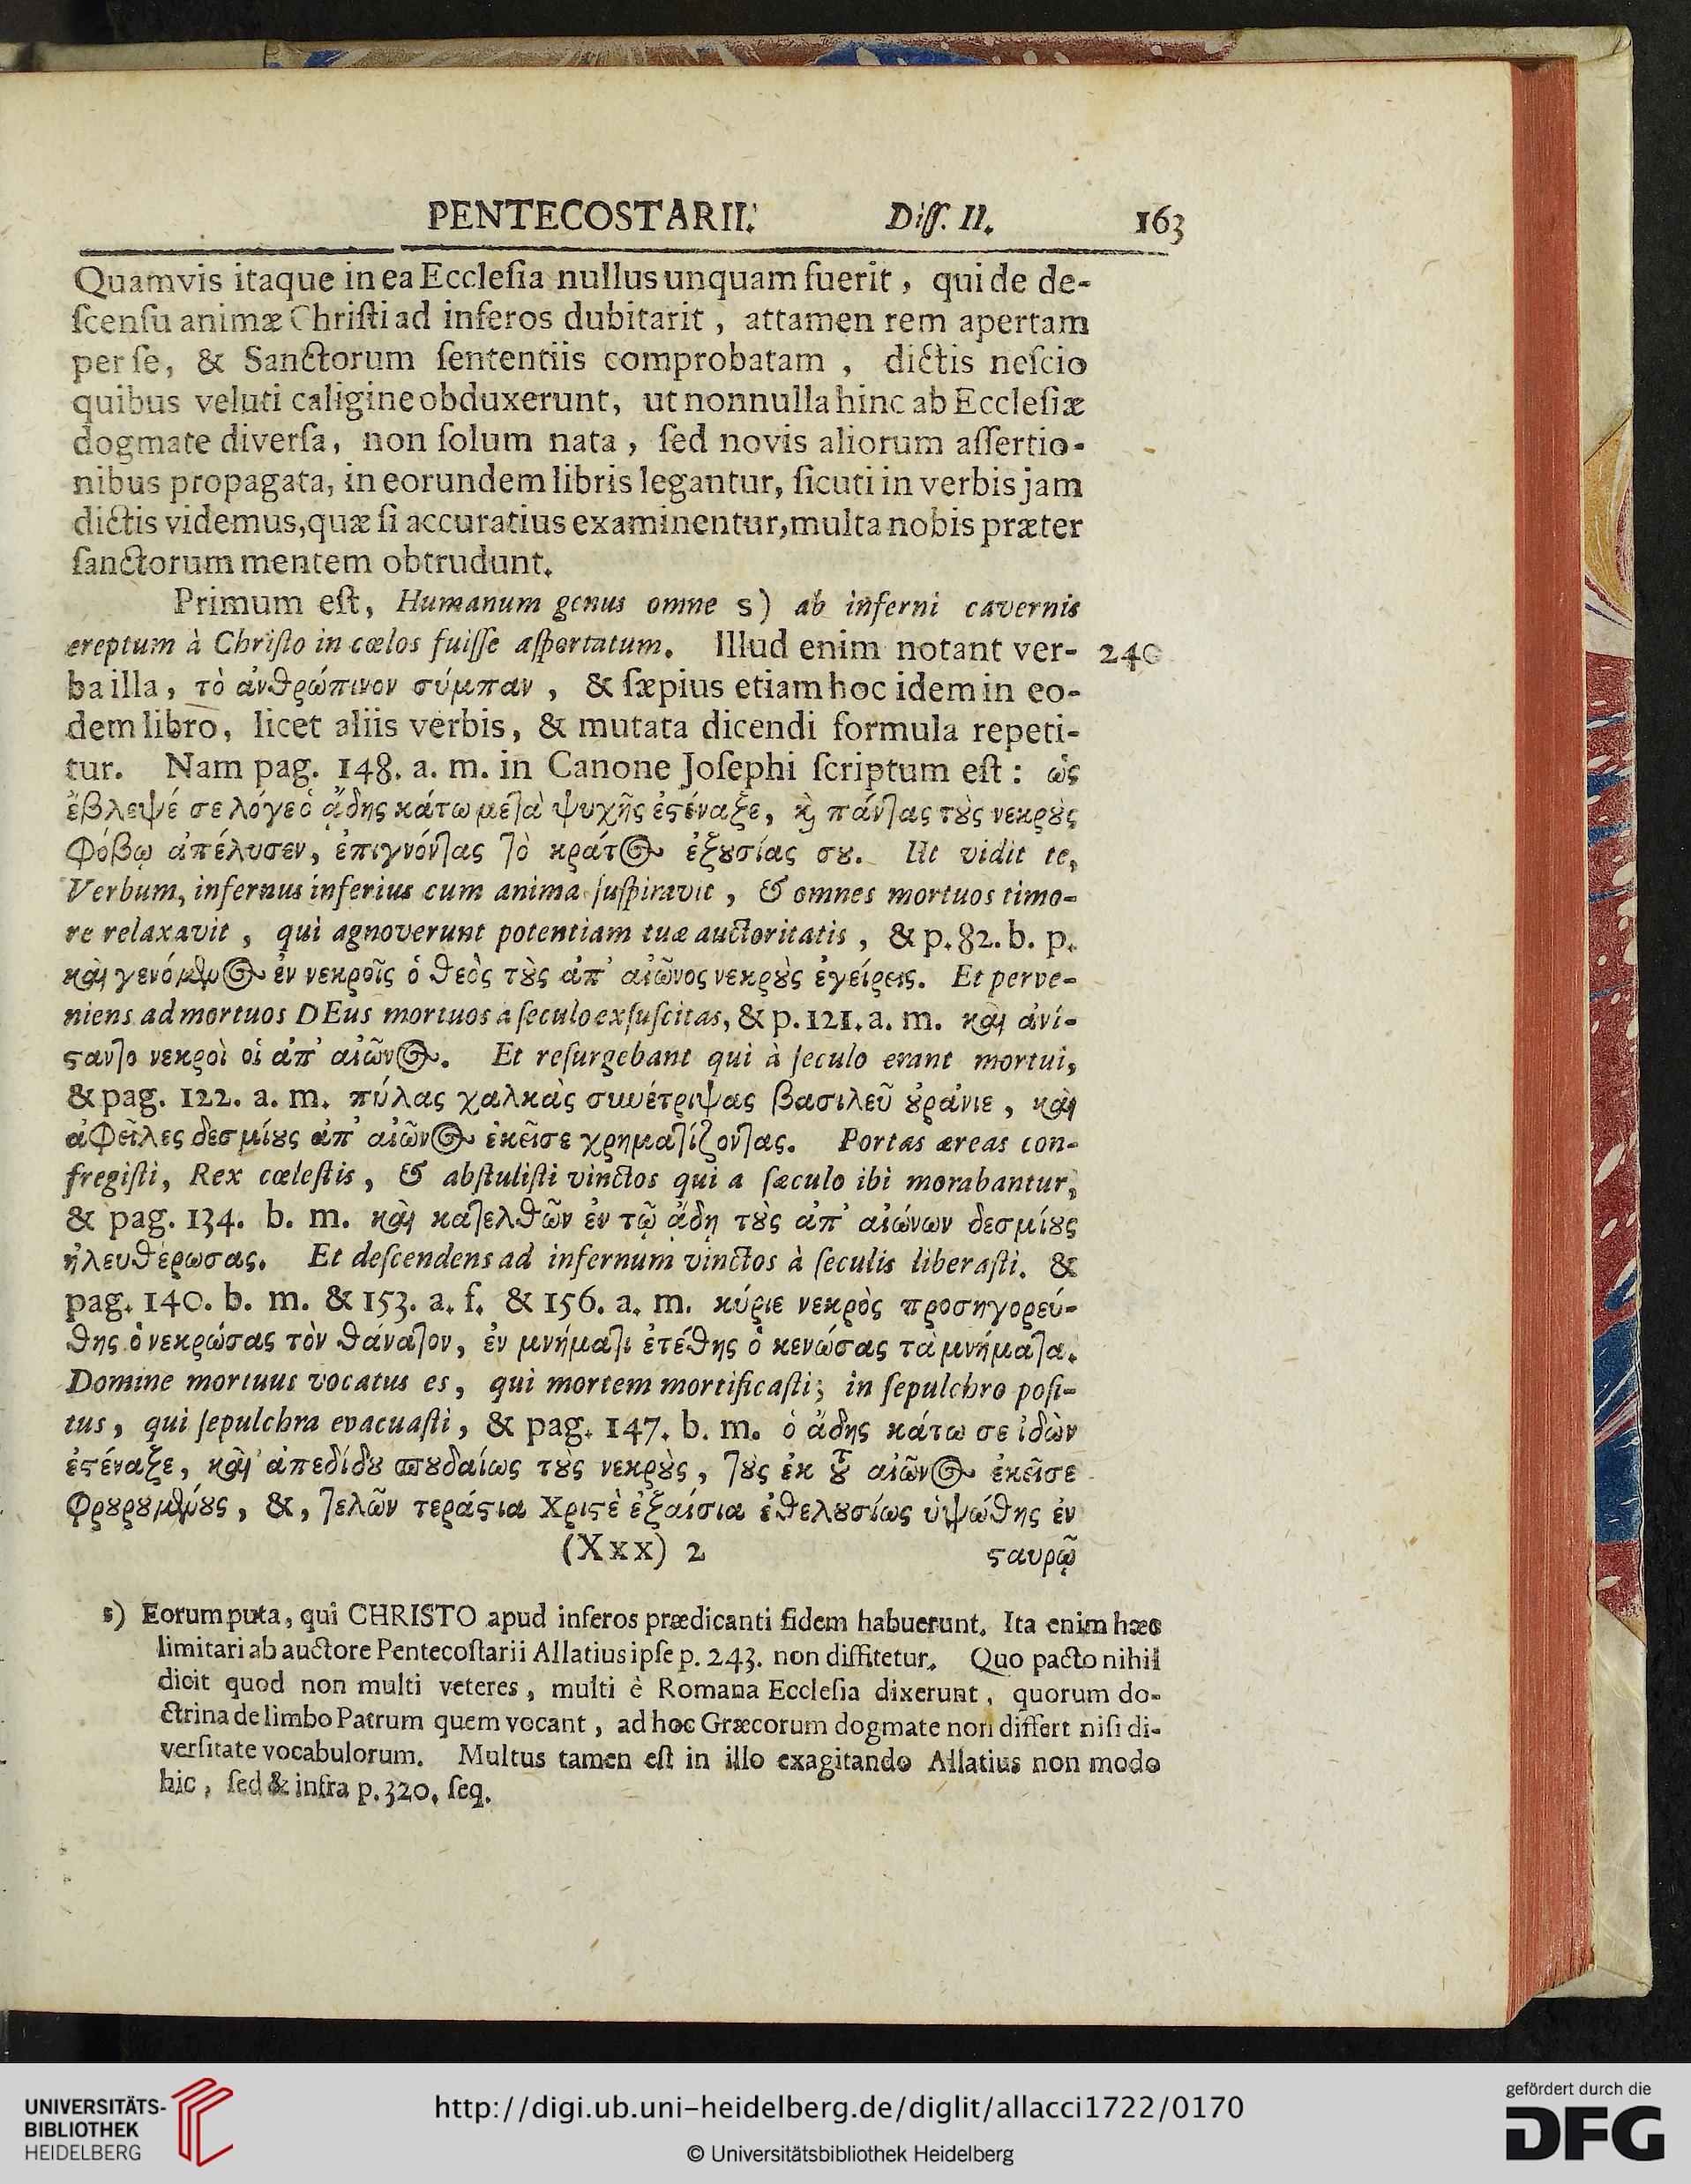 PENTECOSTARII. Diſſ. II. 163
Quamvis itaque in ea Eccleſia nullus unquam fuerit, qui de de-
ſcenſu animæ Chriſti ad inferos dubitarit, attamen rem apertam
per ſe, & Sanctorum ſententiis comprobatam, dictis neſcio
quibus veluti caligine obduxerunt, ut nonnulla hinc ab Eccleſiæ
dogmate diverſa, non ſolum nata, ſed novis aliorum aſſertio-
nibus propagata, in eorundem libris legantur, ſicuti in verbis jam
dictis videmus, quæ ſi accuratius examinentur, multa nobis præter
ſanctorum mentem obtrudunt.
Primum eſt, Humanum genus omne s) ab inferni cavernis
ereptum à Chriſto in cœlos fuiſſe aſportatum. Illud enim notant ver- 240
ba illa, τὸ ἀνθρώπινον σύμπαν, & ſæpius etiam hoc idem in eo-
dem libro, licet aliis verbis, & mutata dicendi formula repeti-
tur. Nam pag. 148. a. m. in Canone Joſephi ſcriptum eſt: ὡς
ἔβλεψέ σε λόγε ὁ ᾅδης κάτω μετὰ ψυχῆς ἐςέναξε, ϗ πάντας τȣ̀ς νεκρȣ̀ς
φόβῳ ἀπέλυσεν, ἐπιγνόντας τὸ κράτος ἐξȣσίας σȣ. Ut vidit te,
Verbum, infernus inferius cum anima ſuſpiravit, & omnes mortuos timo-
re relaxavit, qui agnoverunt potentiam tuæ auctoritatis, & p. 82. b. p.
καὶ γενόμενος ἐν νεκροῖς ὁ θεὸς τȣ̀ς ἀπ' αἰῶνος νεκρȣ̀ς ἐγείρεις. Et perve-
niens ad mortuos DEus mortuos a ſeculo exſuſcitas, & p. 121. a. m. καὶ ἀνί-
ςαντο νεκροὶ οἱ ἀπ' αἰῶνος. Et reſurgebant qui à ſeculo erant mortui,
& pag. 122. a. m. πύλας χαλκὰς συνέτριψας βασιλεῦ ȣ̓ράνιε, καὶ
ἀφεῖλες δεσμίȣς ἀπ' αἰῶνος ἐκεῖσε χρηματίζοντας. Portas æreas con-
fregiſti, Rex cœleſtis, & abſtuliſti vinctos qui a ſæculo ibi morabantur,
& pag. 134. b. m. καὶ κατελθῶν ἐν τῷ ᾅδῃ τȣ̀ς ἀπ' αἰώνων δεσμίȣς
ἠλευθέρωσας. Et deſcendens ad infernum vinctos à ſeculis liberaſti. &
pag. 140. b. m. & 153. a. f. & 156. a. m. κύριε νεκρὸς προσηγορεύ-
θης ὁ νεκρώσας τὸν θάνατον, ἐν μνήματι ἐτέθης ὁ κενώσας τὰ μνήματα.
Domine mortuus vocatus es, qui mortem mortificaſti; in ſepulchro poſi-
tus, qui ſepulchra evacuaſti, & pag. 147. b. m. ὁ ᾅδης κάτω σε ἰδὼν
ἐςέναξε, καὶ ἀπεδίδȣ σπȣδαίως τȣ̀ς νεκρȣ̀ς, τȣ̀ς ἐκ τȣ͂ αἰῶνος ἐκεῖσε
φρȣρȣμένȣς, &, τελῶν τεράςια Χριςὲ ἐξαίσια ἐθελȣσίως ὑψώθης ἐν
(Xxx) 2 ςαυρῷ
s) Eorum puta, qui CHRISTO apud inferos prædicanti fidem habuerunt. Ita enim hæc
limitari ab auctore Pentecoſtarii Allatius ipſe p. 243. non diffitetur. Quo pacto nihil
dicit quod non multi veteres, multi è Romana Eccleſia dixerunt, quorum do-
ctrina de limbo Patrum quem vocant, ad hoc Græcorum dogmate non differt niſi di-
verſitate vocabulorum. Multus tamen eſt in illo exagitando Allatius non modo
hic, ſed & infra p. 320. ſeq.
UNIVERSITÄTS-
BIBLIOTHEK
HEIDELBERG
http://digi.ub.uni-heidelberg.de/diglit/allacci1722/0170
© Universitätsbibliothek Heidelberg
gefördert durch die
DFG